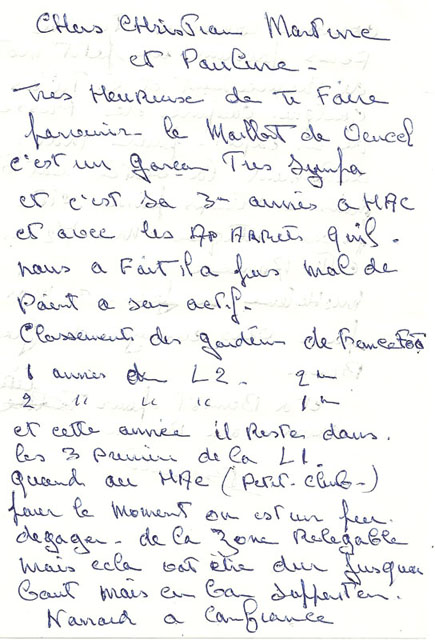 Chers Christian Martine
et Pauline -
Très Heureuse de Te Faire
parvenir le Maillot de
c'est un garçon Très Sympa
et c'est sa 3ème année a HAC
et avec les ARRETS qu'il -
nous a Fait il a pas mal de
Point a son actif -
Classements des gardiens de France Foot
1 année en L2. 2ème
2 " " " 1er
et cette année il Reste dans.
les 3 premier de la L1.
quand au HAC (Petit-Club-)
pour le Moment on est un peu
dégager - de la Zone Relegable
mais cela vat être dur Jusqu'au
bout mais en bon supporter.
a confiance